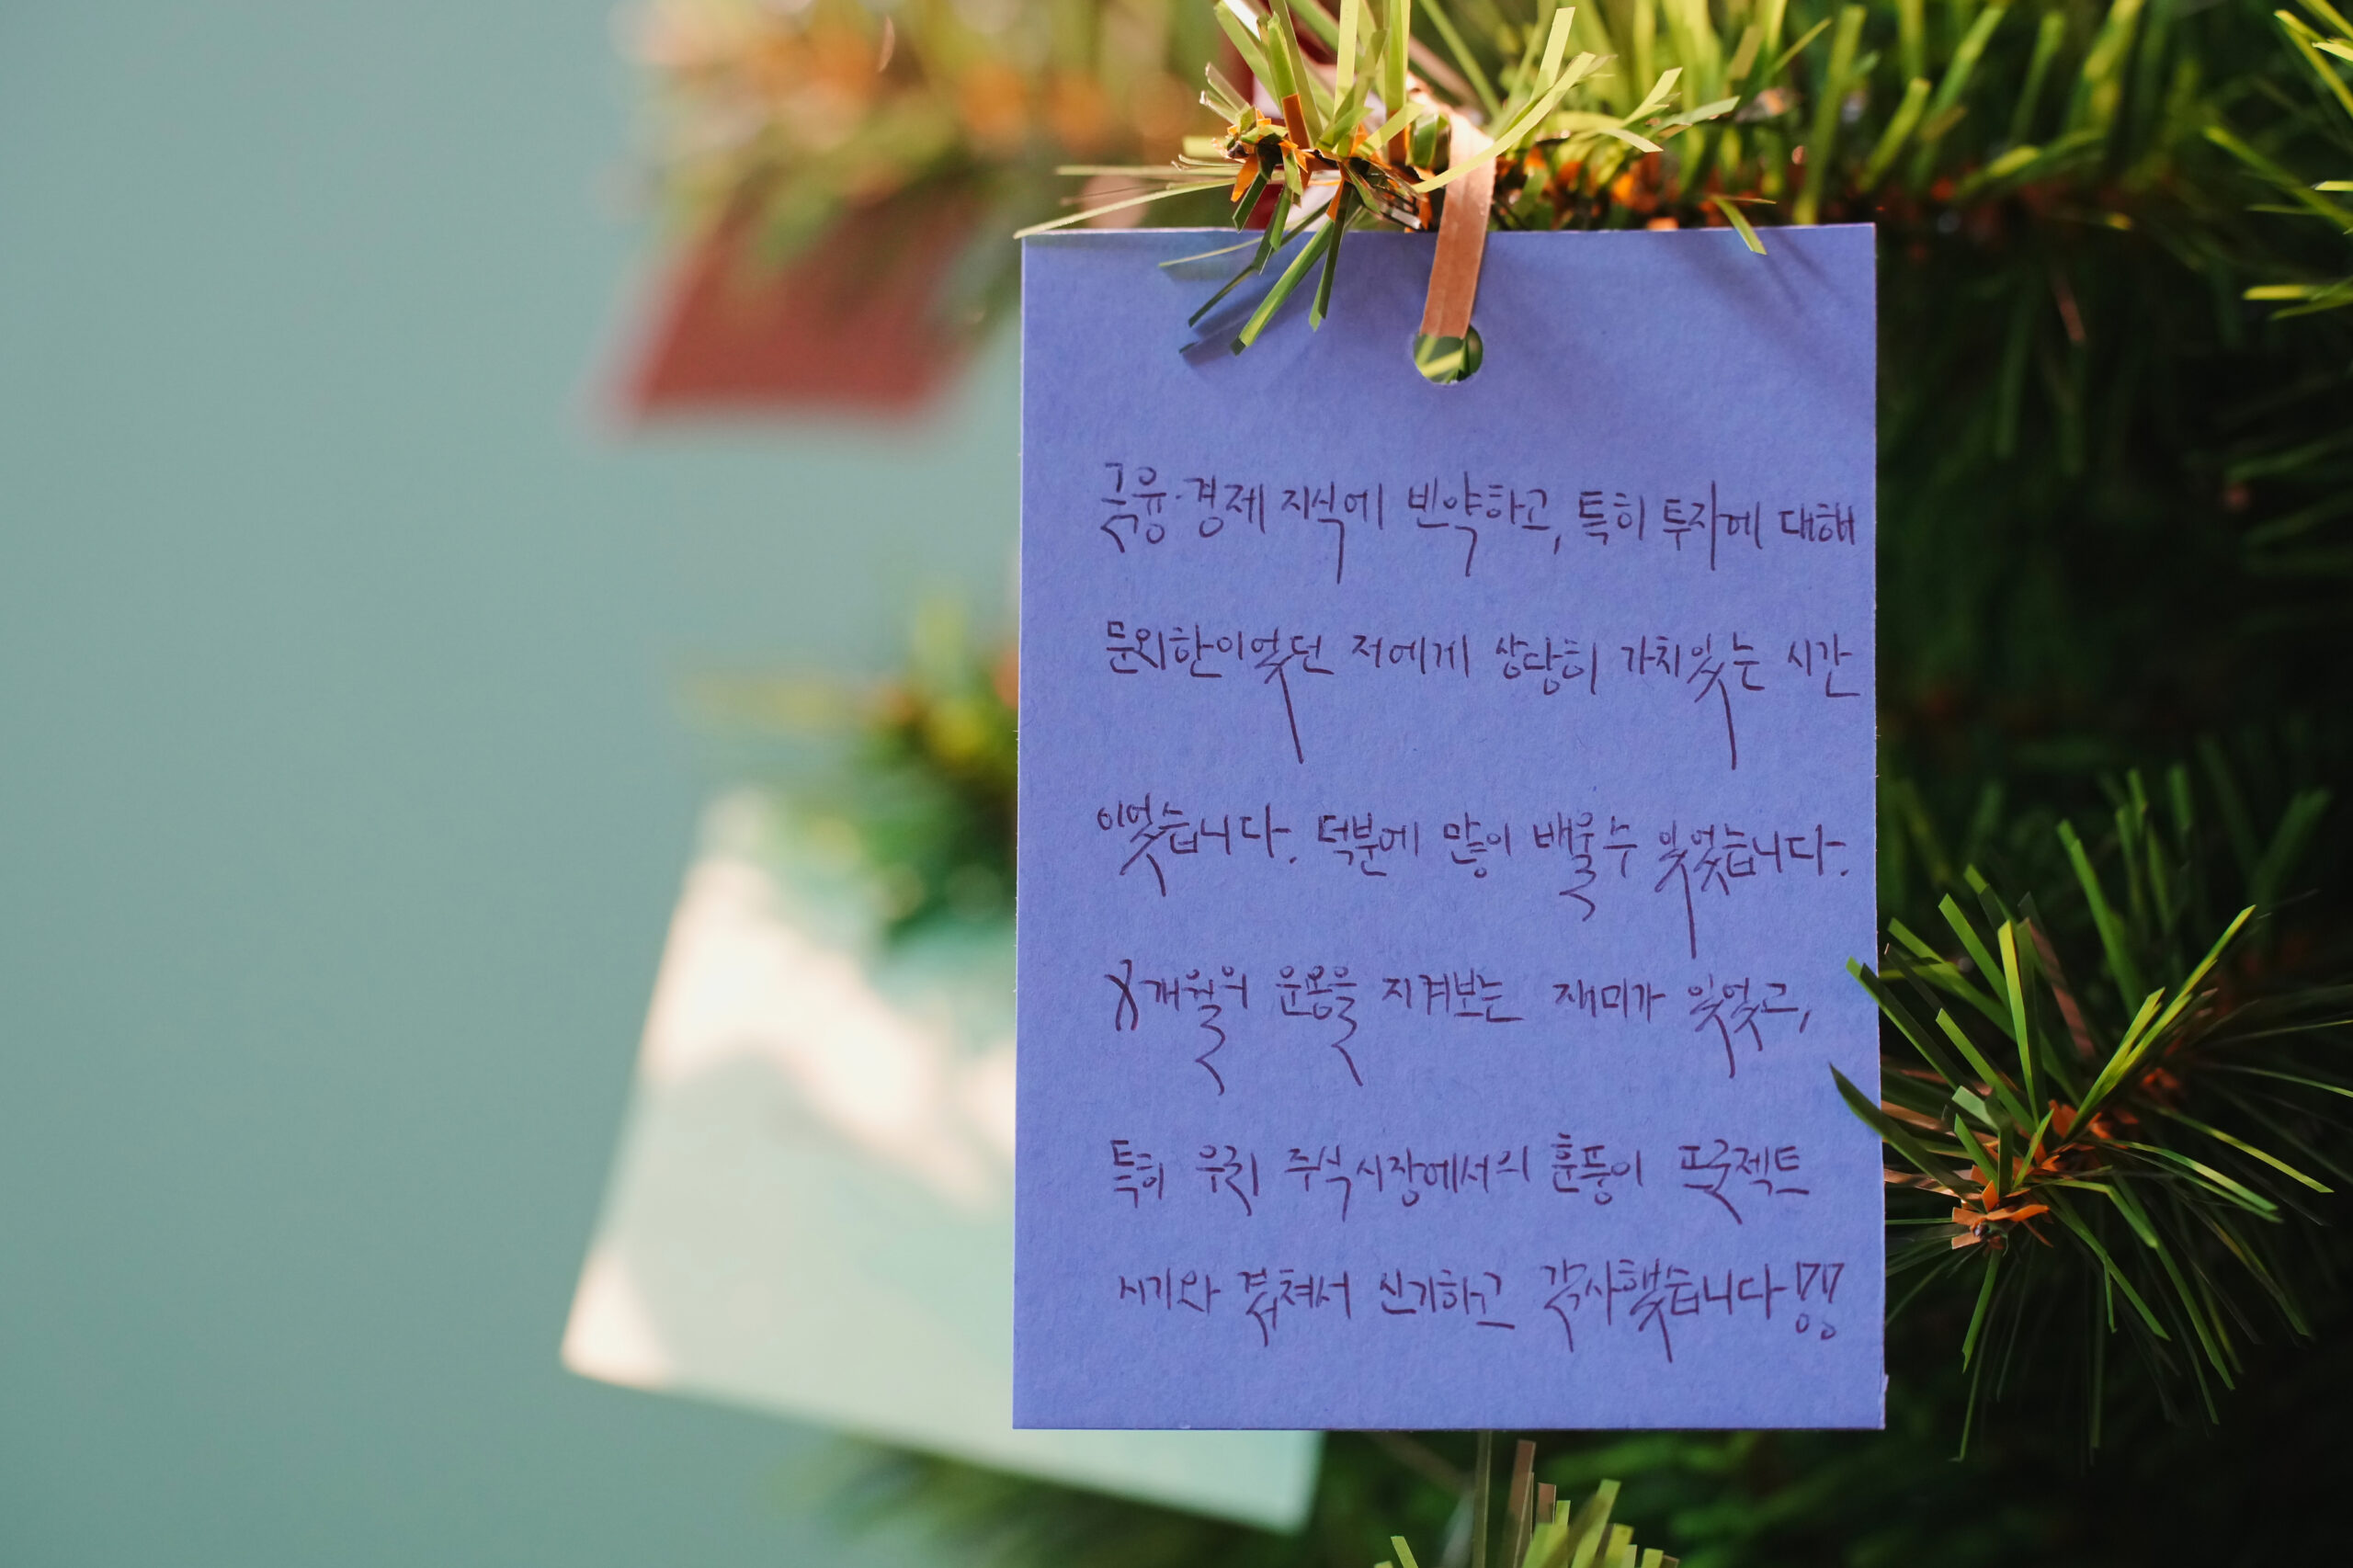 금융·경제 지식에 빈약하고, 특히 투자에 대해
문외한이었던 저에게 상당히 가치있는 시간
이었습니다. 덕분에 많이 배울 수 있었습니다.
X개월의 운용을 지켜보는 재미가 있었고,
특히 우리 주식시장에서의 훈풍이 프로젝트
시기와 겹쳐서 신기하고 감사했습니다!!